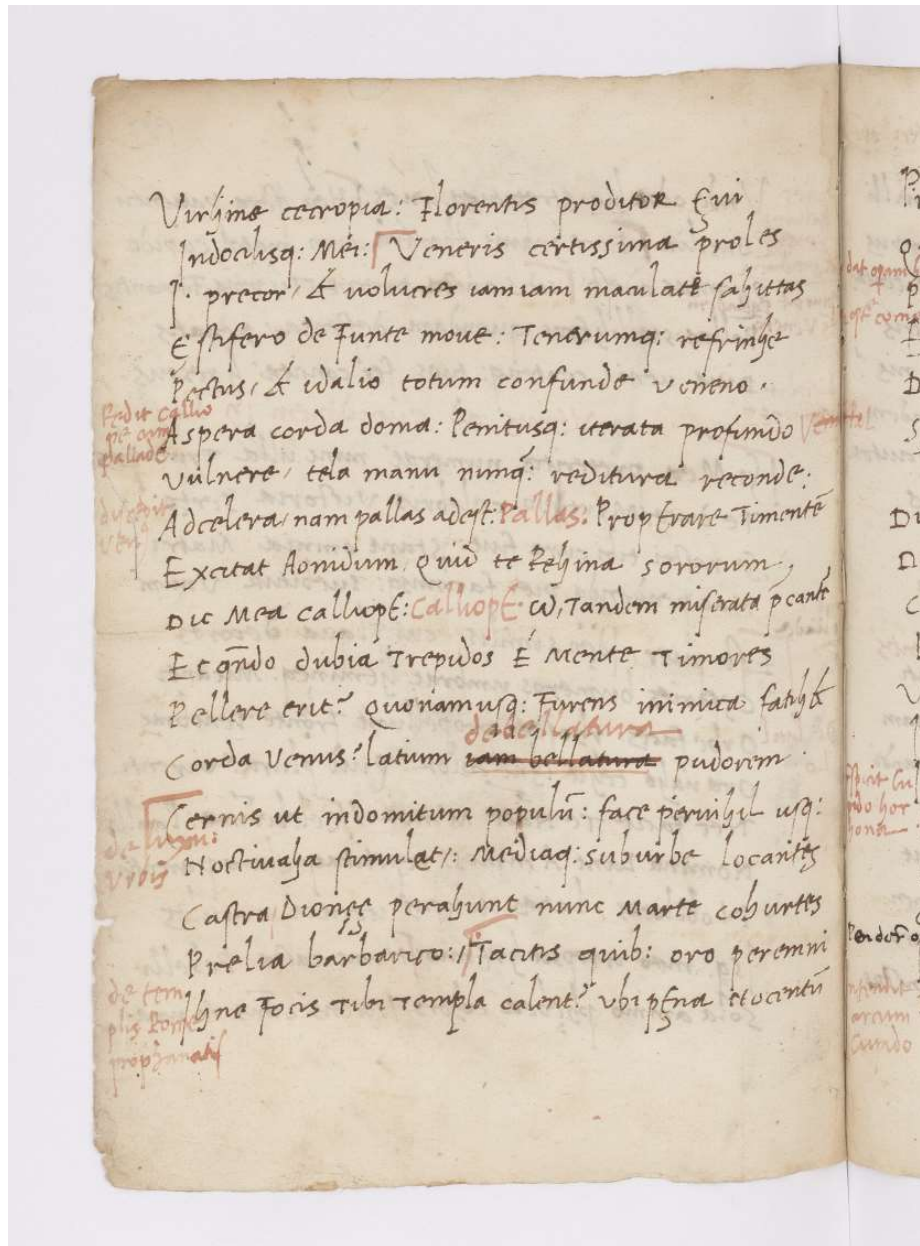 Virginę cecropia: Florentis proditor ęvi
Indocilisq: Mei: Veneris certissima proles
I. precor, & volucres iam iam maculatę sagittas
Ęstifero de Funte move: Tenerumq: refringe
Pectus, & idalio totum confunde veneno.
Redit callio
pe cum
pallade
Aspera corda doma: Penitusq: iterata profundo
Vulnere, tela manu nunq̃: reditura reconde:
Adcelera, nam pallas adest: Pallas: PropErare Timentẽ
Excitat Aonidum, Quid te Regina sororum,
Dic Mea calliopE: CalliopE. ω, Tandem miserata p̃cantẽ
Ecqñdo dubia Trepidos É Mente Timores
Pellere erit? Quoniamusq: Furens inimica fatig&
debellatura
Corda Venus? latium iam bellatura pudorem.
Cernis ut indomitum populũ: face pervigil usq:
de luxu
Urbis
Noctivaga stimulat,: Mediaq: suburbe locantes
Castra Dionęę peragunt nunc Marte cohurtes
Prelia barbarico:, Tacitis quib: oro peremni
de tem
plis Romę
prophanatis
Igne Focis Tibi Templa calent? Ubi pęna nocentũ